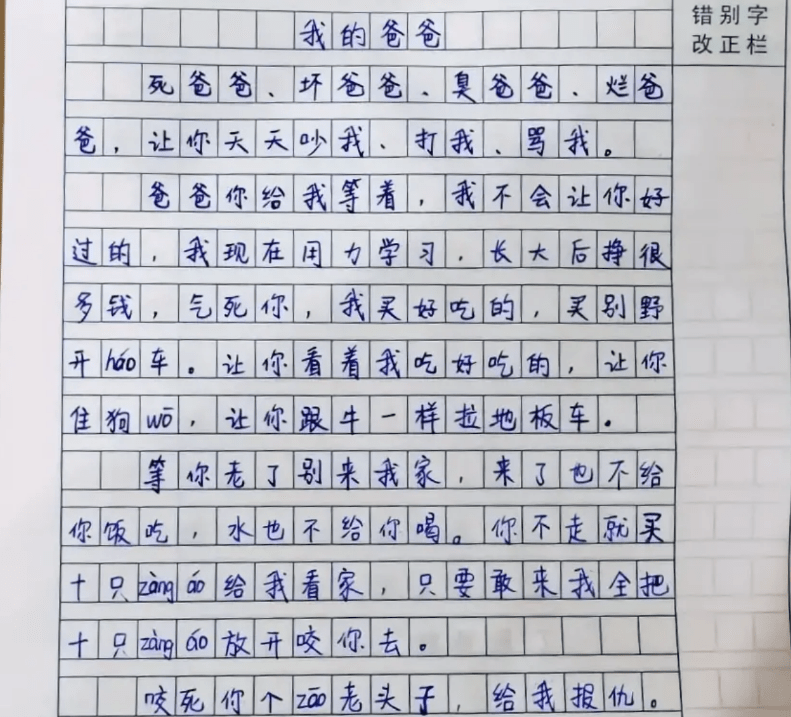 错别字
改正栏
我的爸爸
死爸爸、坏爸爸、臭爸爸、烂爸
爸,让你天天吵我、打我、骂我。
爸爸你给我等着,我不会让你好
过的,我现在用力学习,长大后挣很
多钱,气死你,我买好吃的,买别野
开háo车。让你看着我吃好吃的,让你
住狗wō,让你跟牛一样拉地板车。
等你老了别来我家,来了也不给
你饭吃,水也不给你喝。你不走就买
十只zàng áo给我看家,只要敢来我全把
十只zàng áo放开咬你去。
咬死你个zāo老头子,给我报仇。